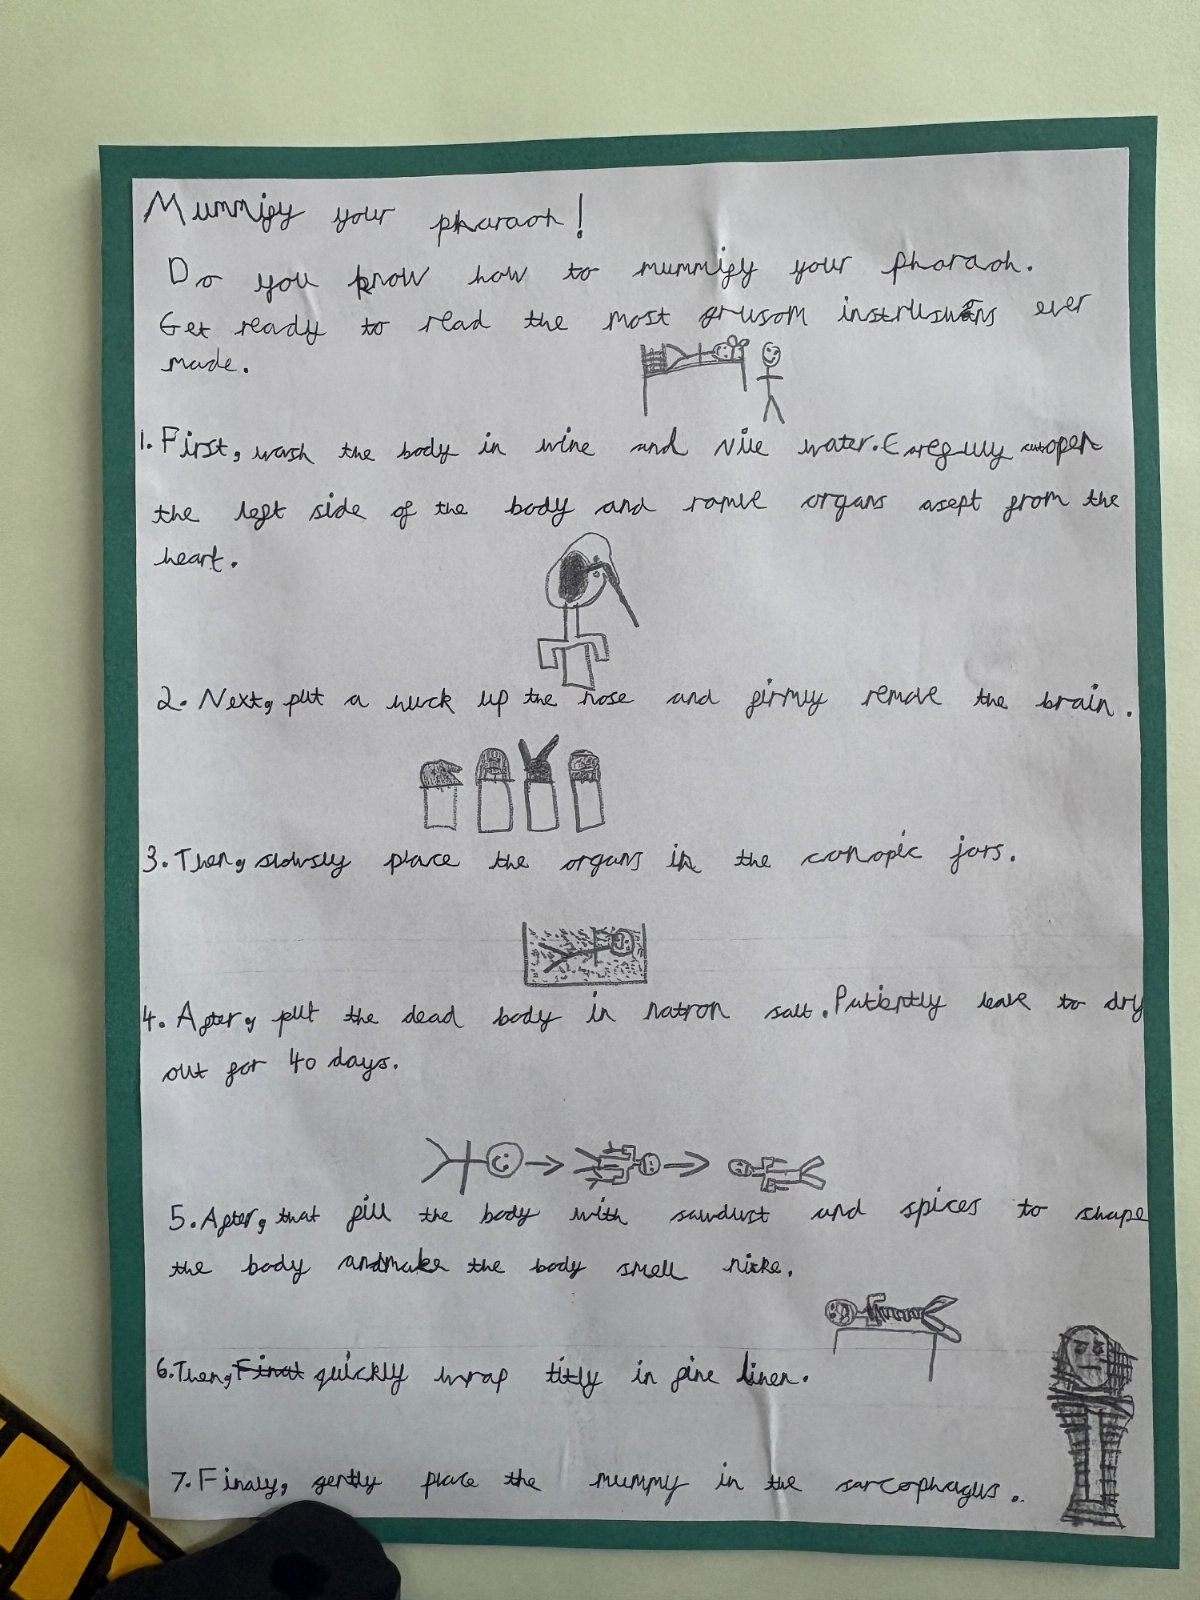 Mummify your pharaoh!
Do you know how to mummify your pharaoh.
Get ready to read the most grusom instruswens ever
made.
1. First, wash the body in wine and Nile water. Carefully open
the left side of the body and romve organs asept from the
heart.
2. Next, put a huck up the nose and firmly remove the brain.
3. Then, slowsly place the organs in the canopic jars.
4. After, put the dead body in natron salt. Patiently leave to dry
out for 40 days.
5. After, that fill the body with sawdust and spices to shape
the body and make the body smell nicke.
6. Then, Final quickly wrap titly in fine linen.
7. Finaly, gently place the mummy in the sarcophagus.